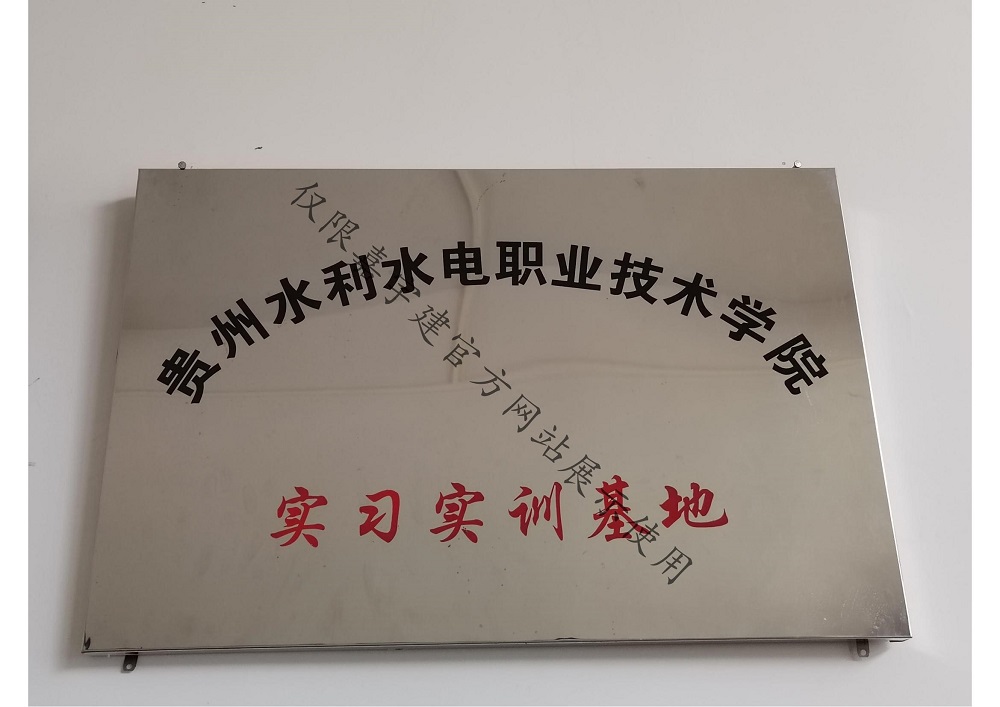 贵州水利水电职业技术学院
实习实训基地
仅限嘉宇建官方网站展示使用